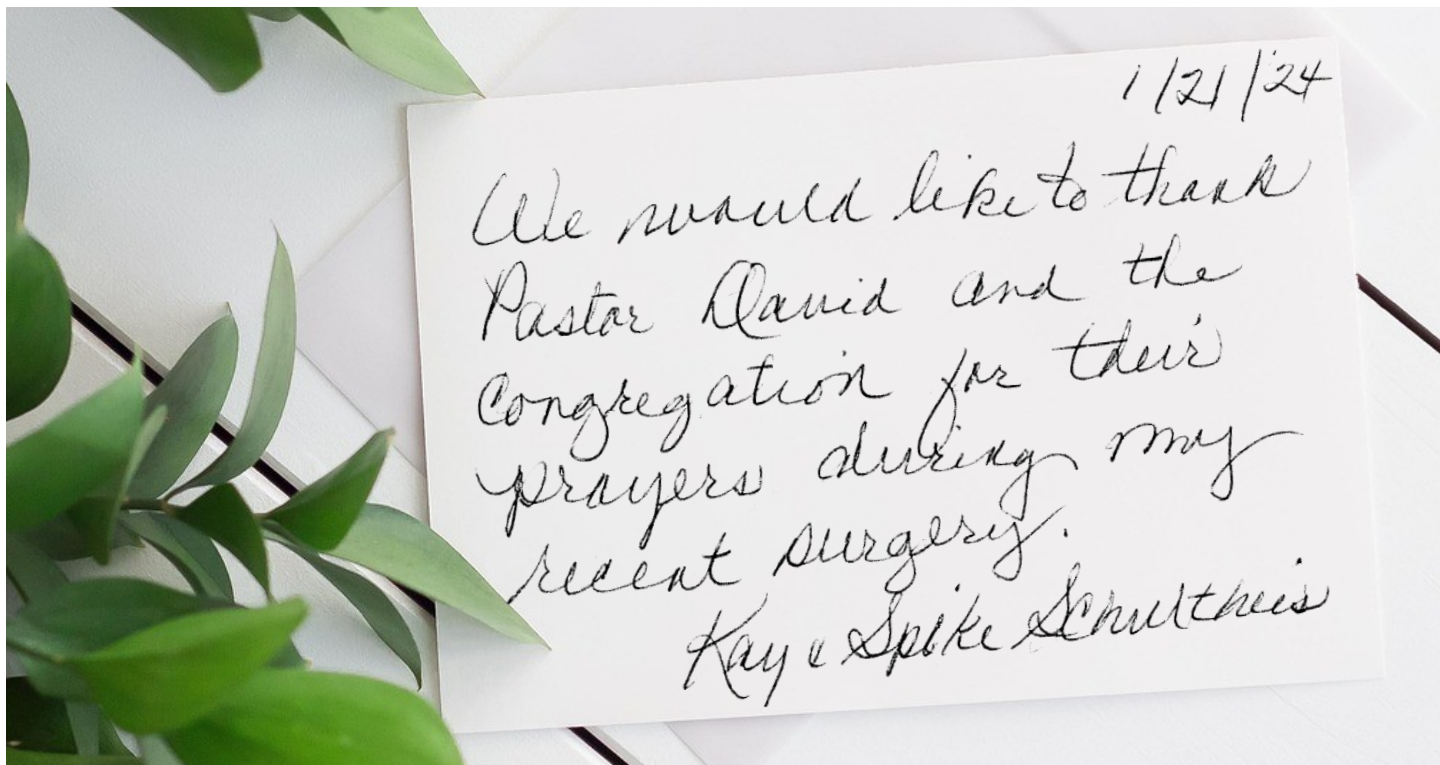 1/21/'24
We would like to thank
Pastor David and the
congregation for their
prayers during my
recent surgery.
Kay & Spike Schultheis